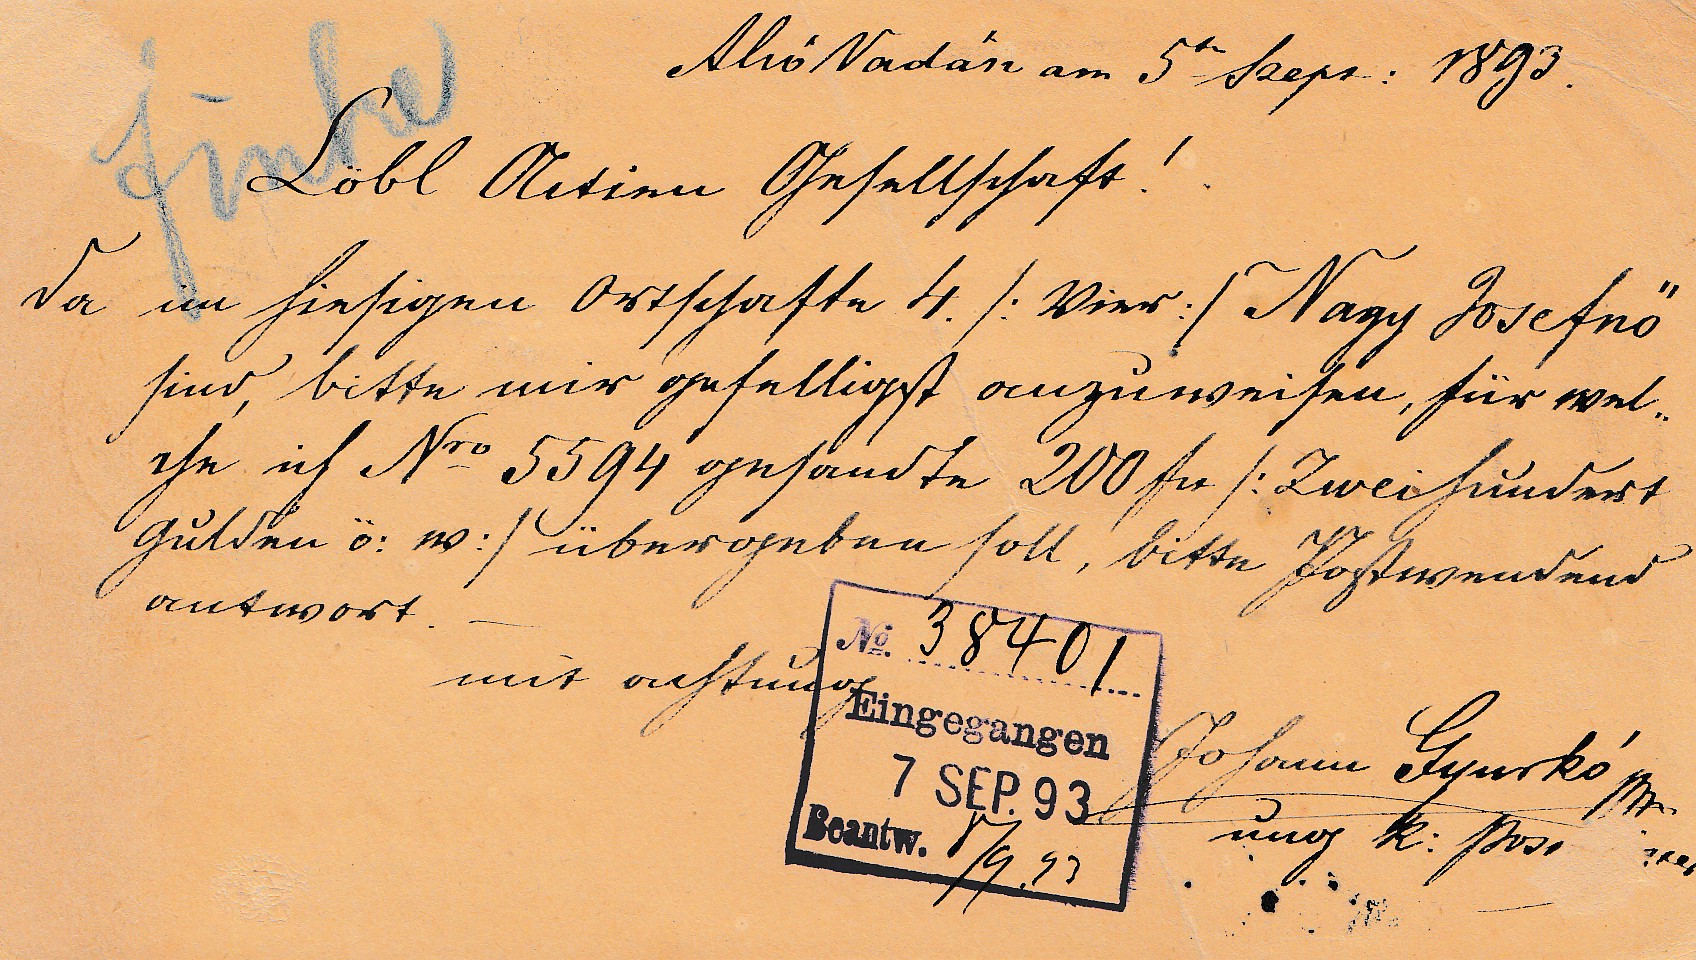 Alsó Vadász am 5ten Szept: 1893.
Löbl Actien Gesellschaft!
Da im hiesigen Ortschafte 4. /: Vier :/ Nagy Josefnö
sind, bitte mir gefelligst anzuweisen, für wel-
che ich Nro 5594 gesandte 200 fr /: Zwei hundert
Gulden ö: w: :/ übergeben soll, bitte Postwendend
antwort. —
mit achtung
Johann Gyurkó
ung k: Post
No. 38401
Eingegangen
7 SEP. 93
Beantw. 8/9.93